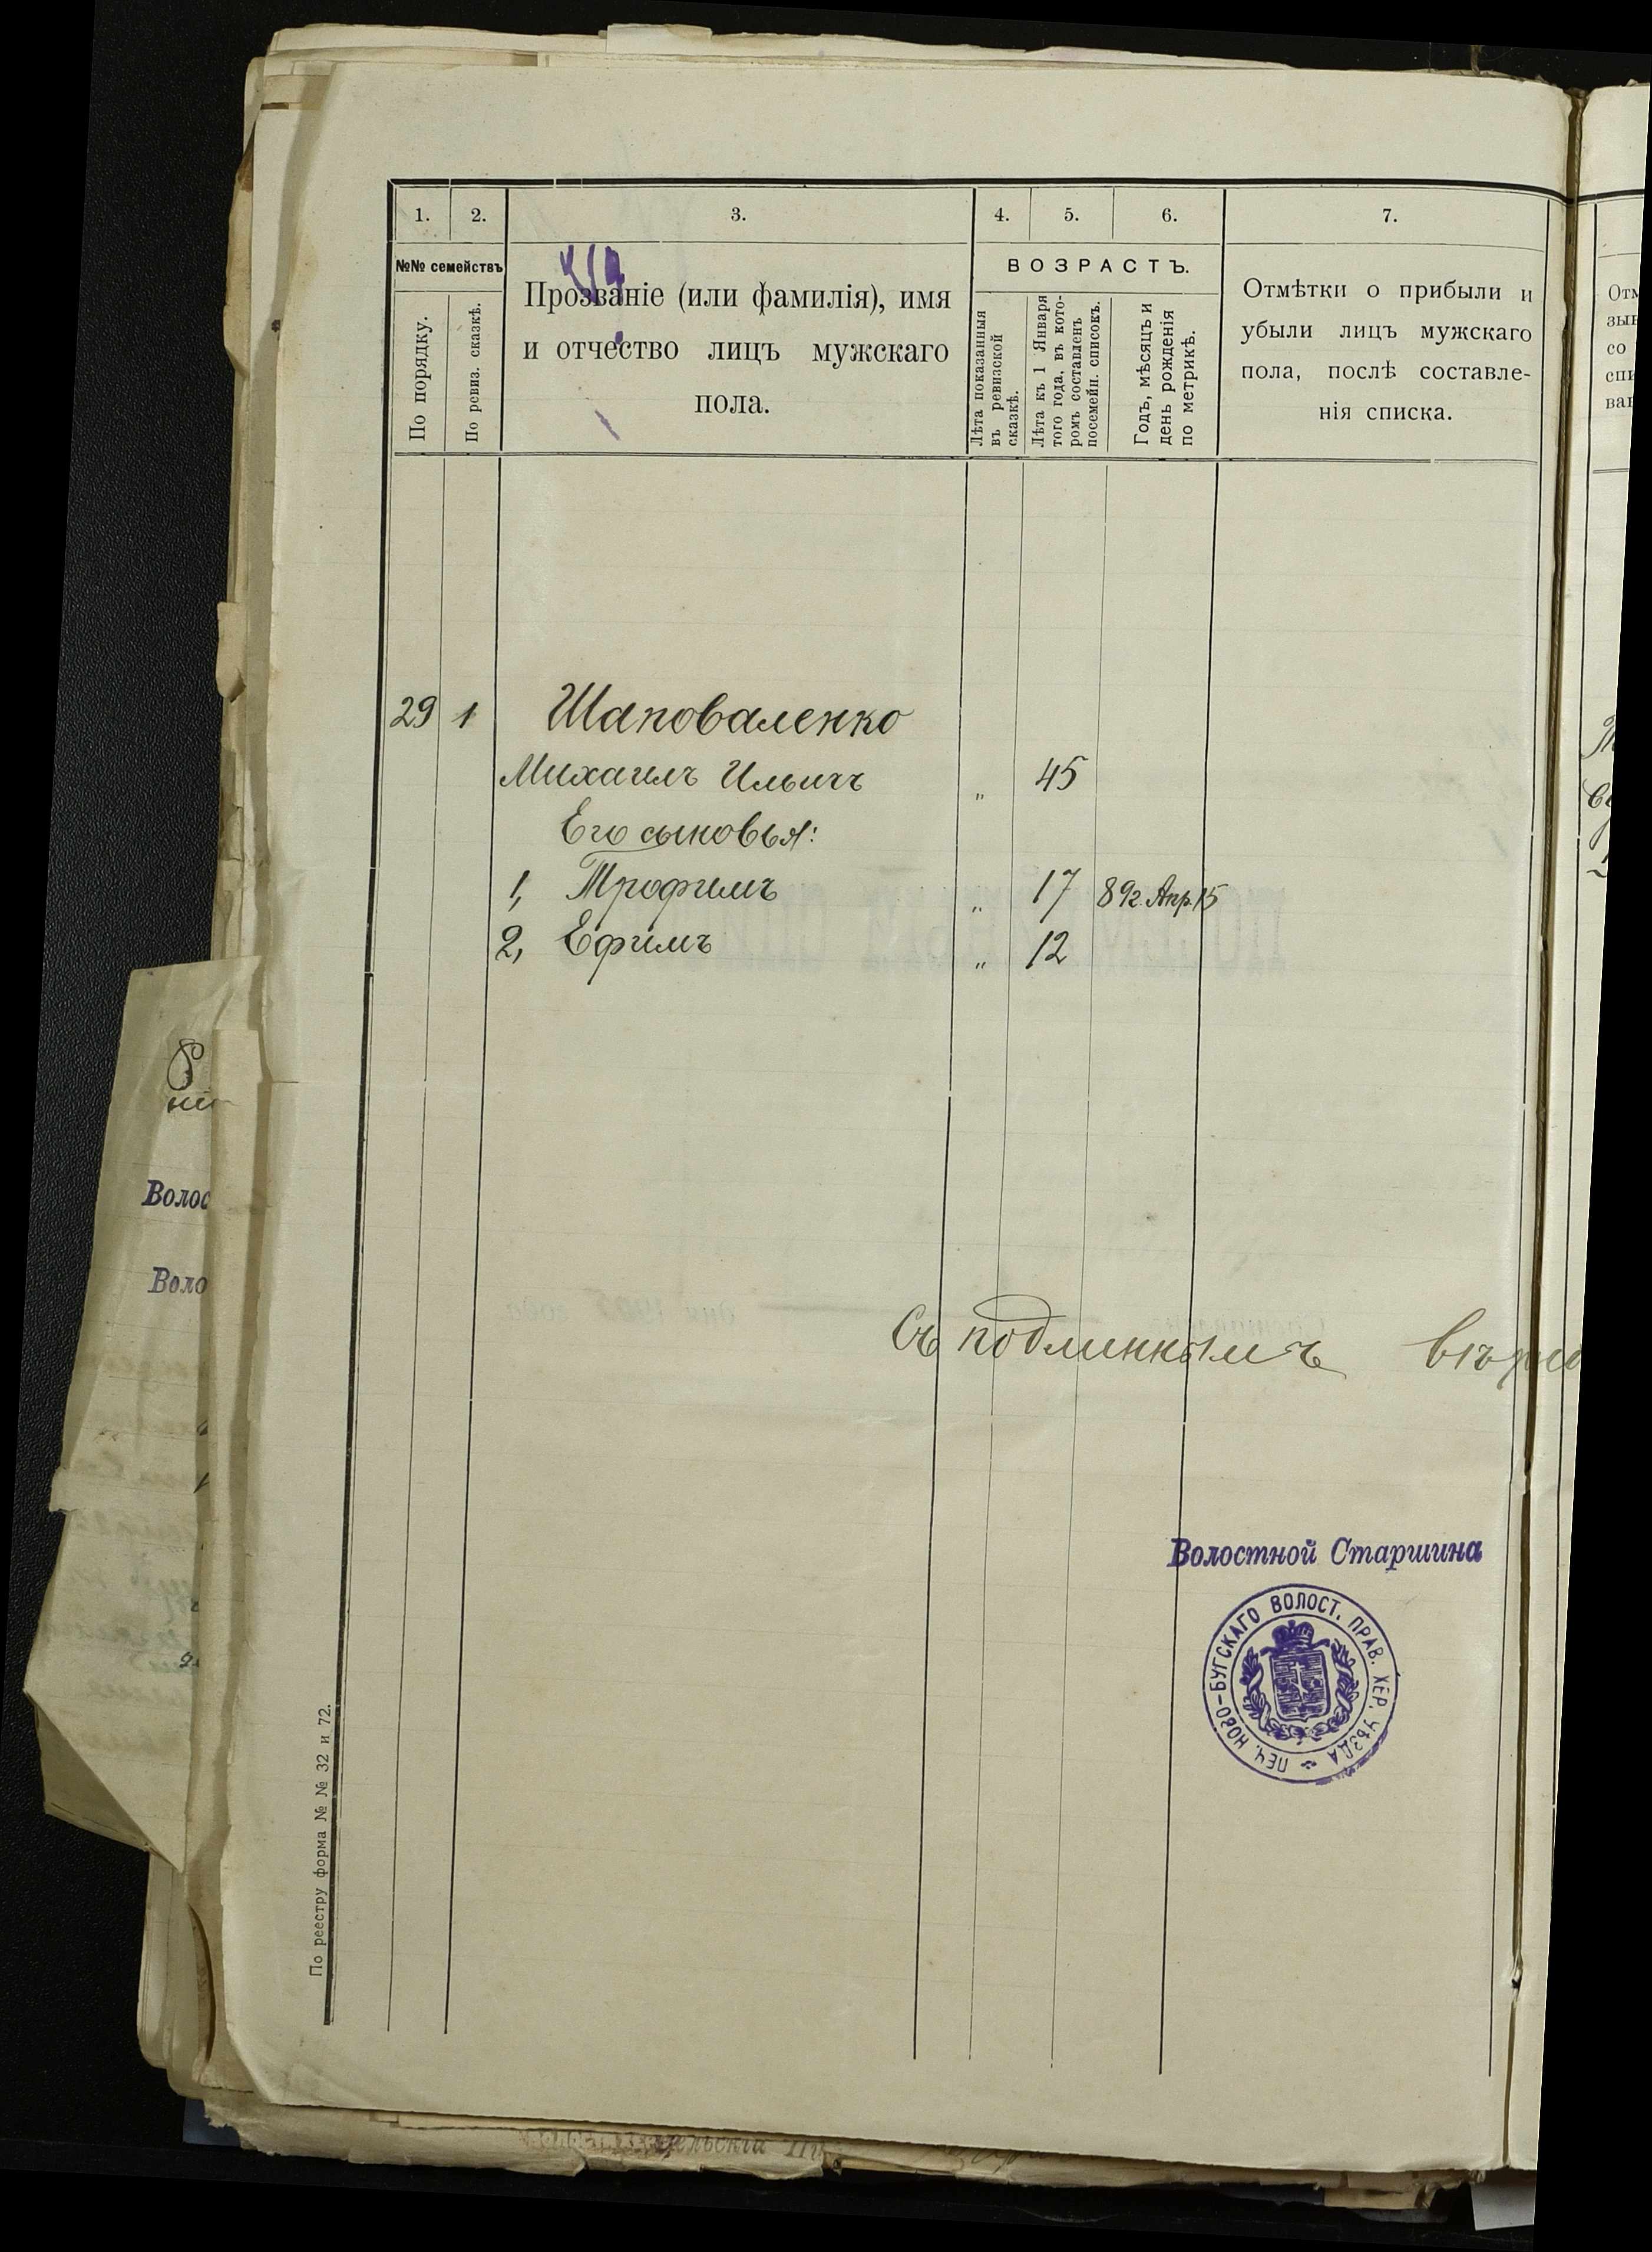 1.
2.
3.
4.
5.
6.
7.
№№ семействъ
По порядку.
По ревиз. сказкѣ.
Прозваніе (или фамилія), имя
и отчество лицъ мужскаго
пола.
ВОЗРАСТЪ.
Лѣта показанныя
въ ревизской
сказкѣ.
Лѣта къ 1 Января
того года, въ кото-
ромъ составленъ
посемейн. списокъ.
Годъ, мѣсяцъ и
день рожденія
по метрикѣ.
Отмѣтки о прибыли и
убыли лицъ мужскаго
пола, послѣ составле-
нія списка.
29 1 Шаповаленко
Михаилъ Ильичъ „ 45
Его сыновья:
1, Трофимъ „ 17 892. Апр. 15
2, Ефимъ „ 12
Съ подлиннымъ вѣрно
Волостной Старшина
ПЕЧ. НОВО-БУГСКАГО ВОЛОСТ. ПРАВ. ХЕР. УѢЗДА
По реестру форма № № 32 и 72.
Волос
Воло